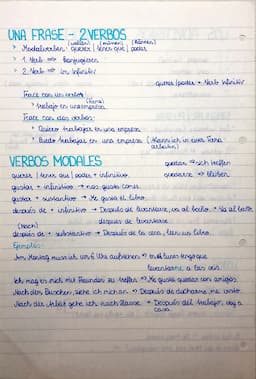 UNA FRASE - 2 VERBOS
(wollen) (müssen) (können)
> Modalverben: querer | tener que | poder
> 1. Verb → konjugieren
> 2. Verb → im Infinitiv
querer/poder + Verb Infinitiv
Frase con un verbo:
(Firma)
> trabajo en una empresa
Frase con dos verbos:
Quiero trabajar en una empresa.
Puedo trabajar en una empresa. (Kann ich in einer Firma
arbeiten)
VERBOS MODALES
quedar → sich treffen
querer | tener que | poder + infinitivo.
quedarse → bleiben
gustar + infinitivo → nos gusta comer
gustar + sustantivo → Me gusta el libro.
después de + infinitivo → Después de levantarse, va al baño. → Va al baño
(nach)
después de levantarse.
después de + substantivo → Después de la cena, leen un libro.
Ejemplos:
Am Montag muss ich um 6 Uhr aufstehen → El lunes tengo que
levantarme a las seis.
Ich mag es mich mit Freunden zu treffen → Me gusta quedar con amigos.
Nach dem Duschen, ziehe ich mich an → Después de ducharme me visto.
Nach der Arbeit gehe ich nach Hause → Después del trabajo, voy a
casa.